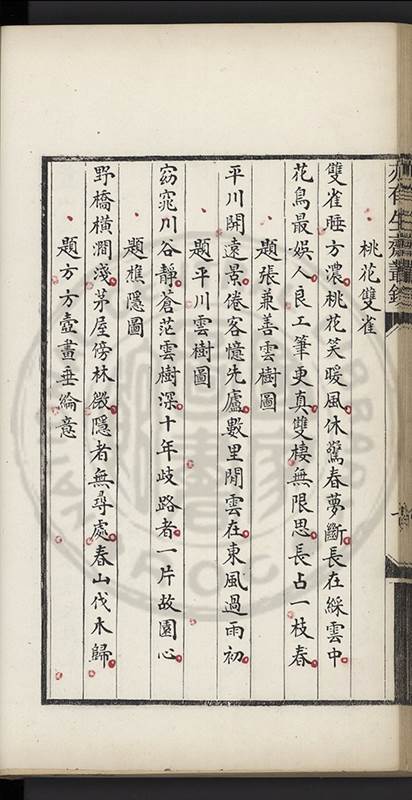 亦有生齋叢錄
桃花雙雀
雙雀睡方濃桃花笑暖風休驚春夢斷長在綵雲中
花鳥最娛人良工筆更真雙棲無限思長占一枝春
題張兼善雲樹圖
平川開遠景倦客憶先廬數里閒雲在東風過雨初
題平川雲樹圖
窈窕川谷靜蒼茫雲樹深十年歧路者一片故園心
題樵隱圖
野橋橫澗淺茅屋傍林微隱者無尋處春山伐木歸
題方方壺畫垂綸意